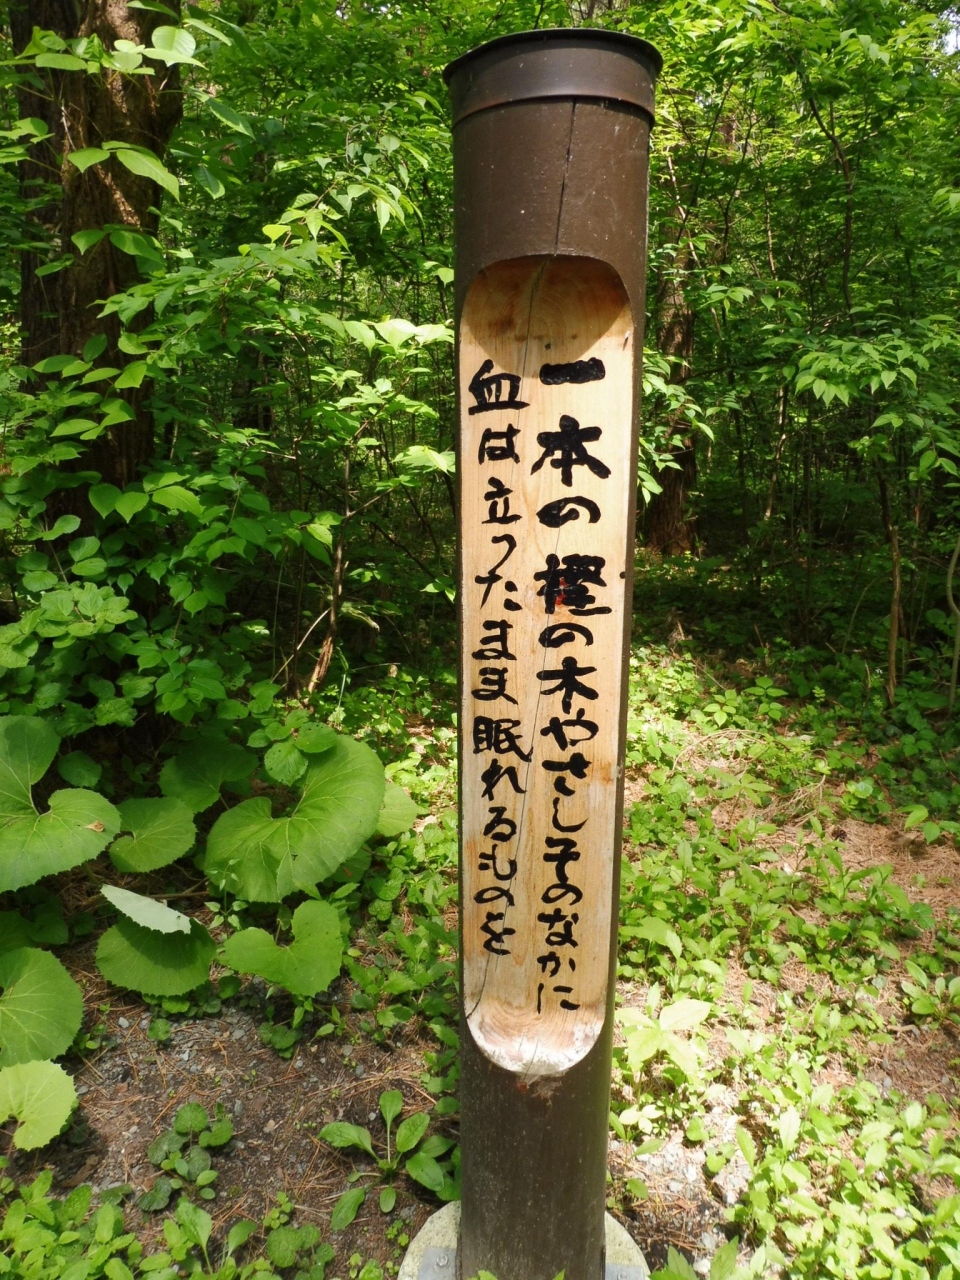 一本の樫の木やさしそのなかに
血は立ったまま眠れるものを